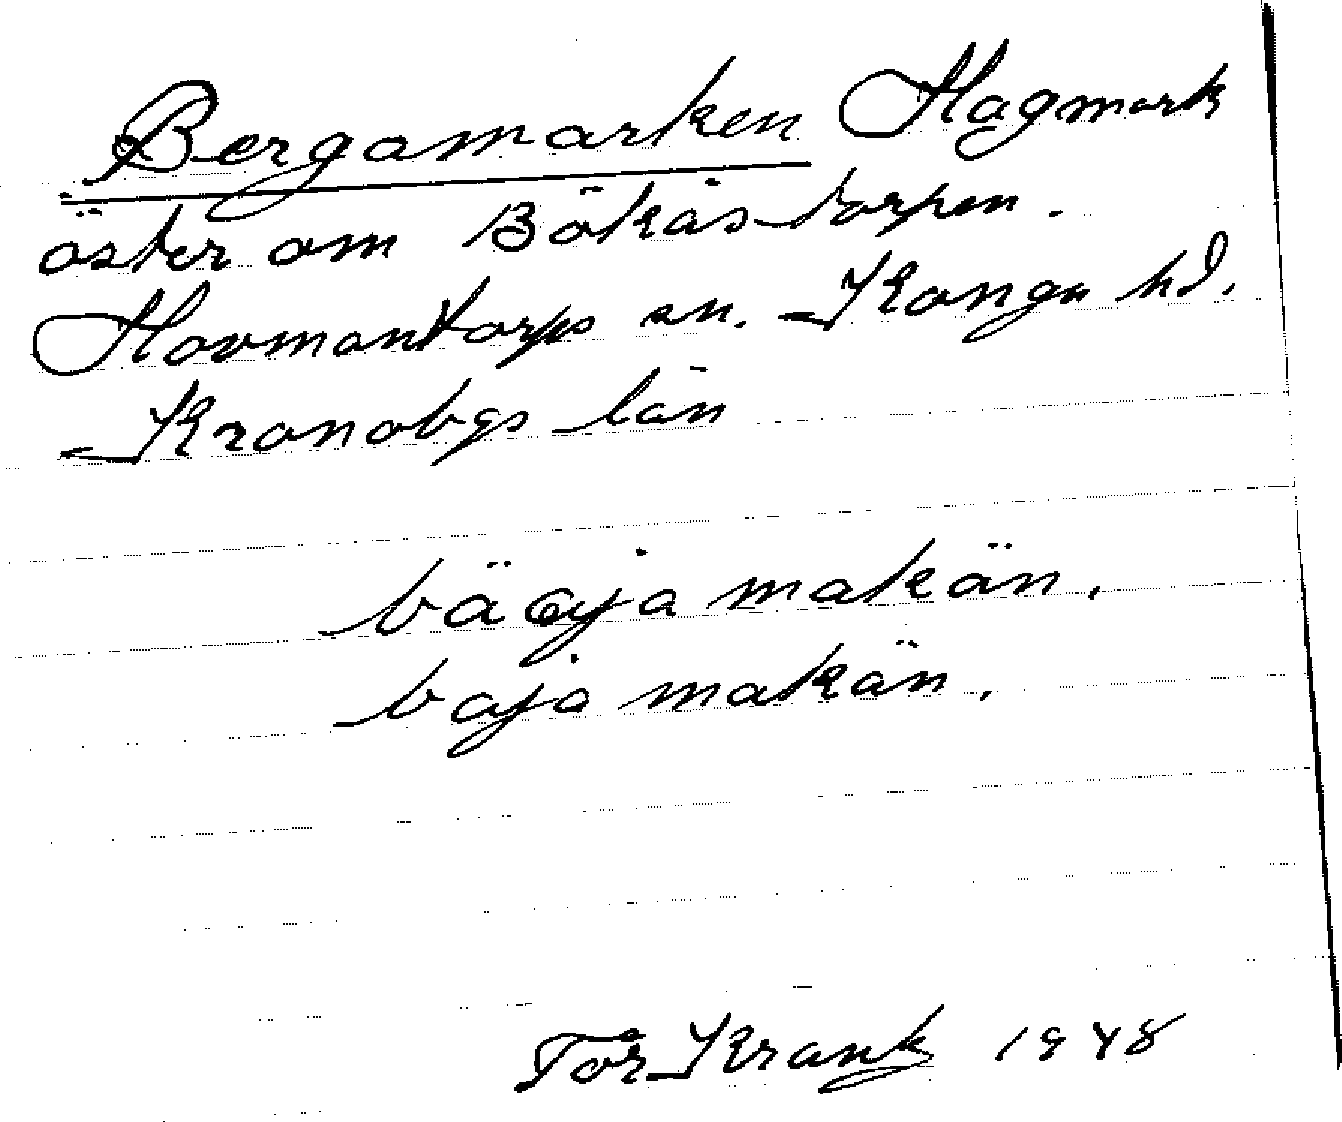 Bergamarken Hagmark
öster om Bökåstorpen.
Hovmantorps sn. Konga hd.
Kronobgs län
makän.
baja makän.
Tor Krank 1948